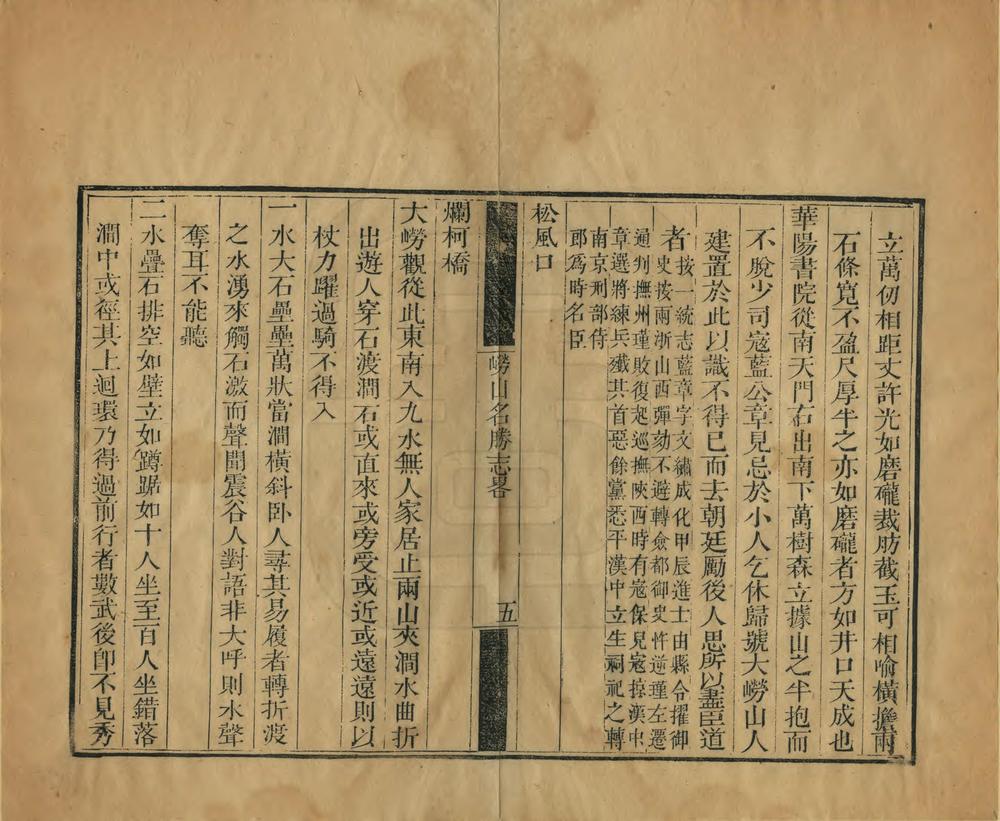 立萬仞相距丈許光如磨礲裁肪截玉可相喻橫擔兩
石條寬不盈尺厚半之亦如磨礲者方如井口天成也
華陽書院從南天門右出南下萬樹森立據山之半抱而
不脫少司寇藍公章見忌於小人乞休歸號大嶗山人
建置於此以識不得已而去朝廷勵後人思所以盡臣道
者按一統志藍章字文繡成化甲辰進士由縣令擢御
史按兩浙山西彈劾不避轉僉都御史忤逆瑾左遷
通判撫州瑾敗復起巡撫陝西時有寇保兒寇掠漢中
章選將練兵殲其首惡餘黨悉平漢中立生祠祀之轉
南京刑部侍
郎爲時名臣
松風口
嶗山名勝志畧
五
爛柯橋
大嶗觀從此東南入九水無人家居止兩山夾澗水曲折
出遊人穿石渡澗石或直來或旁受或近或遠遠則以
杖力躍過騎不得入
一水大石壘壘萬狀當澗橫斜卧人尋其易履者轉折渡
之水湧來觸石激而聲聞震谷人對語非大呼則水聲
奪耳不能聽
二水疊石排空如壁立如蹲踞如十人坐至百人坐錯落
澗中或徑其上迴環乃得過前行者數武後卽不見秀